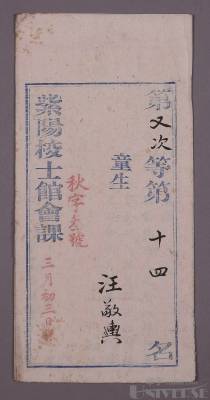 第又次等第十四名
童生
汪敬輿
秋字壹號
三月初三日課
紫陽校士館會課
UNIVERSE